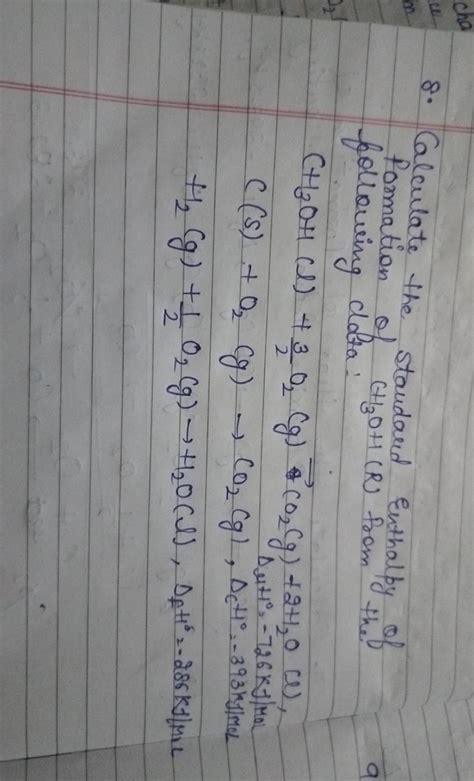 8. Calculate the Standard Enthalpy of
formation of CH3OH(l) from the
following data:
CH3OH (l) + 3/2 O2 (g) → CO2(g) + 2H2O (l),
ΔrH° = -726 KJ/mol
C(S) + O2 (g) → CO2(g), ΔcH° = -393KJ/mol
H2(g) + 1/2 O2(g) → H2O(l), ΔfH° = -286KJ/mol
9